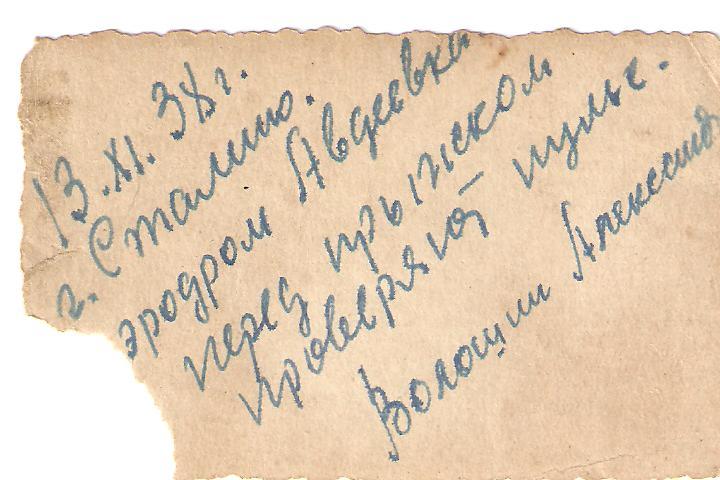 13.XI.38г.
г. Сталино.
эродром Авдеевка
перед прыжском
проверяют пульс.
Волошин Александ